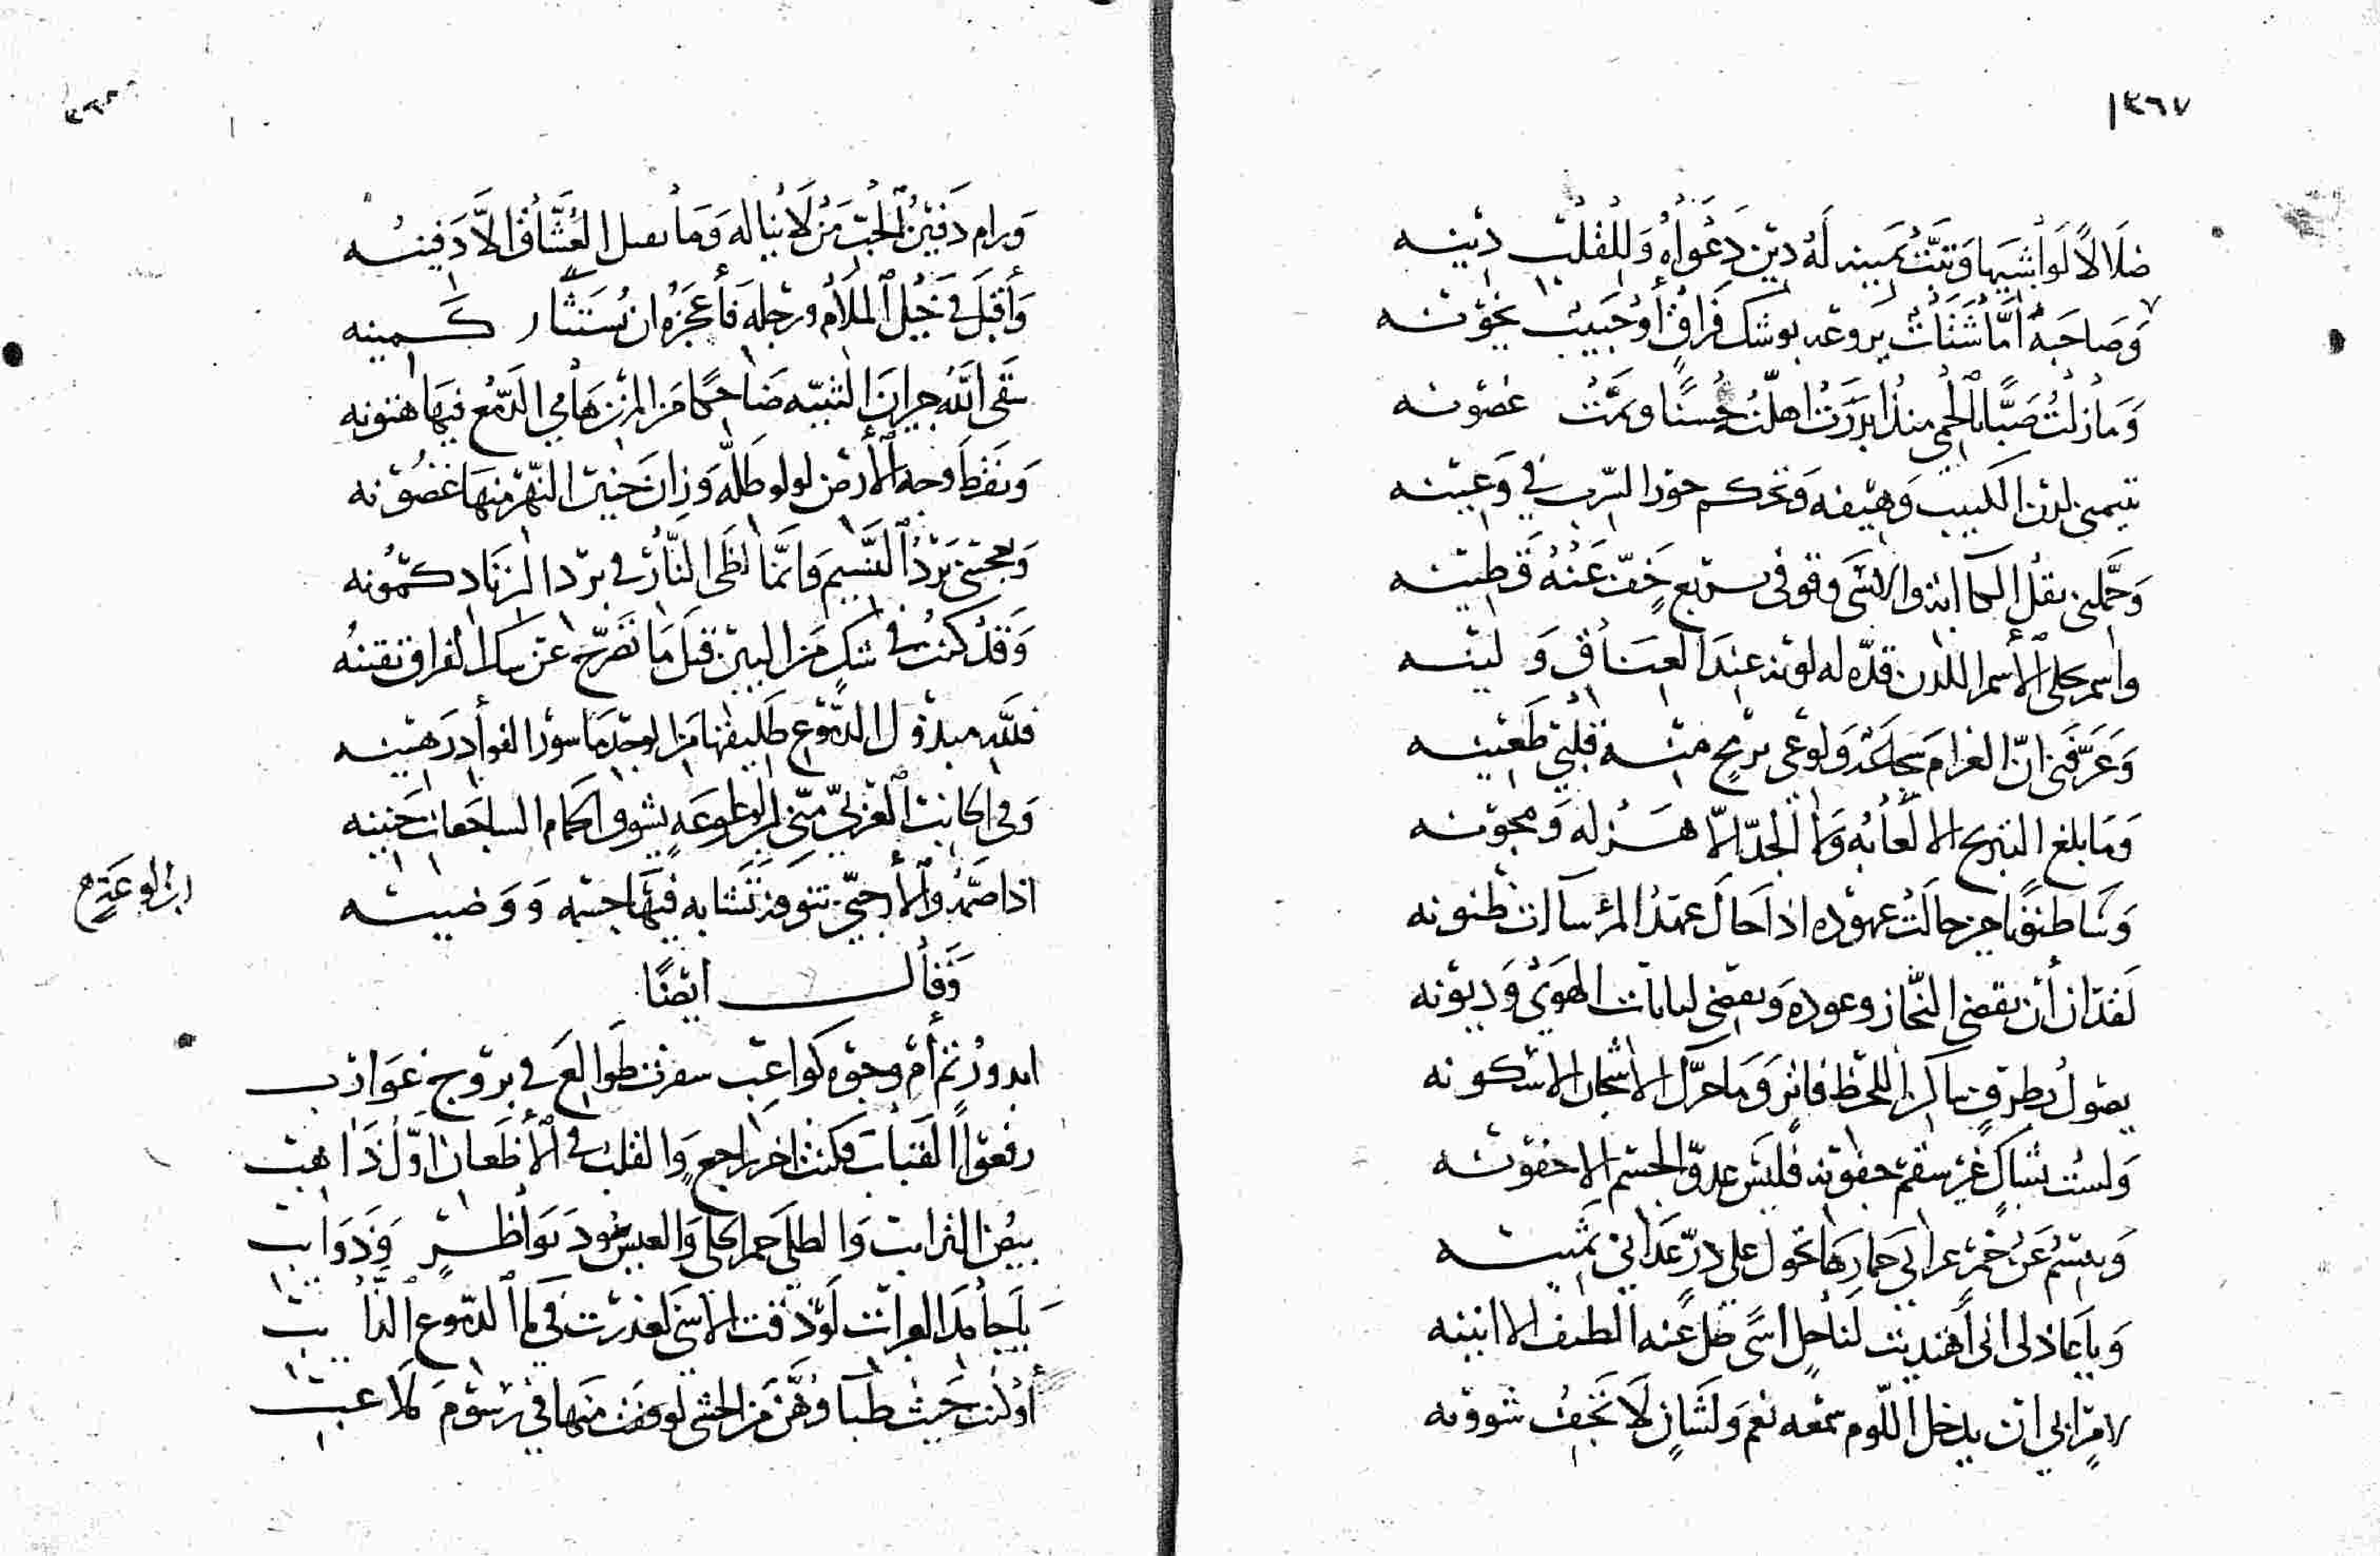 ٣٦٧
ضلالًا لواشيها وتبّت يمينه له دين دعواه وللقلب دينه
وصاحبه اما شتات يروعه بوشك فراق أو حبيب يخونه
وما زلت صبًّا بالحمى منذ ابدرت اهلّته حسنًا وتمّت غصونه
تيمنى لدن الكثيب وهيفه وتحكم حور السرب في وعينه
وحملنى ثقل الكآبة والاسى وقوفى بربع خفّ عنه قطينه
واسمر حلى الأسمر اللدن قدّه له لونه عند العناق ولينه
وعرّفنى انّ الغرام شجاعة ولوعى برمح منه قلبي طعينه
وما بلغ التبريح الا لعابه ولا الجدّ الا هزله ومجونه
وساطننونا حين حالت عهوده اذا حال عهد المرء سآءت ظنونه
لقد آن أن يقضى النجاز وعوده ويقضى لبانات الهوى وديونه
يصول بطرف ساكن اللحظ فاتر وما حرّك الاشجان الا سكونه
ولست بشاك غير سقم جفونه فليس عدوّ الجسم الا جفونه
ويبسم عن خمر عرانى خمارها تحول على درّ عدانى ثمينه
ويا عاذلى انى اهتديت لناحل اسًى ضل عنه الطيف الا انينه
لامرٍ ابى ان يدخل اللّوم سمعه نعم ولشان لا تجف شؤونه
ورام دفين الحب من لا يناله وما يقتل العشّاق الا دفينه
وأقبل في خيل الملام ورجله فأعجزه ان يستثار كمينه
سقى الله جيران الثنيّه ضاحكًا من المزن هامي الدمع فيها هتونه
ونقّط وجه الأرض لولو طلّه وزان جبين النهر منها غضونه
ويعجبنى برد النسيم وانما لظى النار في برد الزناد كمونه
وقد كنت في شك من البين قبل ما تفرّج عن شك الفراق يقينه
فلله مبذول الدموع طليقها من الوجد مأسور الفوأد رهينه
وفى الجانب الغربيّ منّى لوعة يشوق الحمام الساجعات حنينه
اذا ضمّه والأرحبيّ تنوفة تشابه فيها جسمه ووضينه
وقال ايضًا
ابدور تم أم وجوه كواعب سفرت طوالع في بروج غوارب
رفعوا القباب فكنت اخر راجع والقلب في الأظعان اوّل ذاهب
بيض الترائب والطلى حمر الحلى والعيس سود نواظر وذوائب
يا جامد العبرات لو ذقت الاسى لعذرت في الدموع الذائب
أو كنت حيث ظباؤهن من الحشى لوقفت منها في رسوم ملاعب